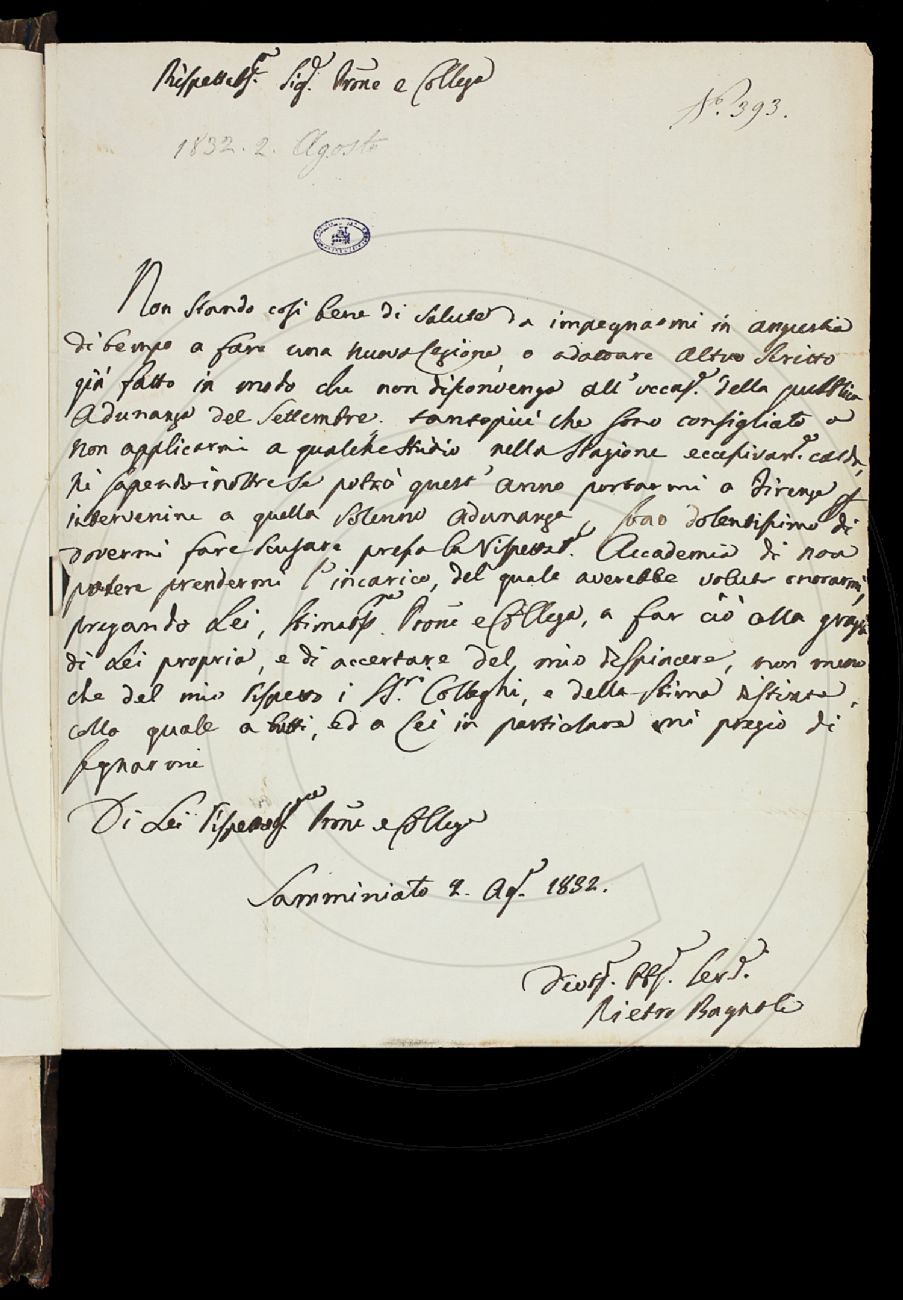 Rispettabs.e Sig.r Prone e Collega
N.o 393.
1832. 2. Agosto
Non stando così bene di salute da impegnarmi in angustia
di tempo a fare una nuova Lezione, o adattare altro scritto
già fatto in modo che non disconvenga all' occas.e della pubblica
Adunanza del Settembre. tantopiù che sono consigliato a
non applicarmi a qualche studio nella stagione eccessivam.e calda,
Nè sapendo inoltre se potrò quest' anno portarmi a Firenze
intervenire a quella solenne adunanza, sono dolentissimo di
dovermi fare scusare presso la Rispettab.e Accademia di non
potere prendermi l' incarico, del quale averebbe voluto onorarmi,
pregando Lei, Stimabss.mo Prone e Collega, a far ciò colla grazia
di Lei propria, e di accertare del mio dispiacere, non meno
che del mio rispetto i SS.ri Colleghi, e della stima distinta,
colla quale a tutti, ed a Lei in particolare mi pregio di
segnarmi
Di Lei Rispettabss.mo Prone e Collega
Samminiato 2. Ag.o 1832.
Devots.o Obb.o Serv.e
Pietro Bagnoli